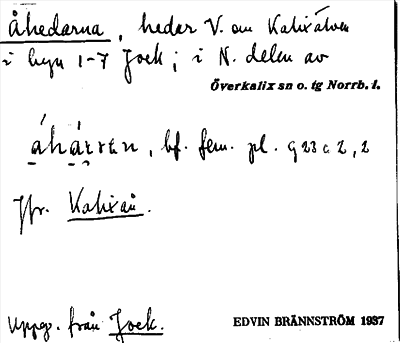 Åhedarna, hedar V. om Kalixälven
i byn 1-7 Jock; i N. delen av
Överkalix sn o. tg Norrb. l.
áhárran, bf. fem. pl. G 23 c 2, 2
Jfr. Kalixån.
Uppg. från Jock.
EDVIN BRÄNNSTRÖM 1937